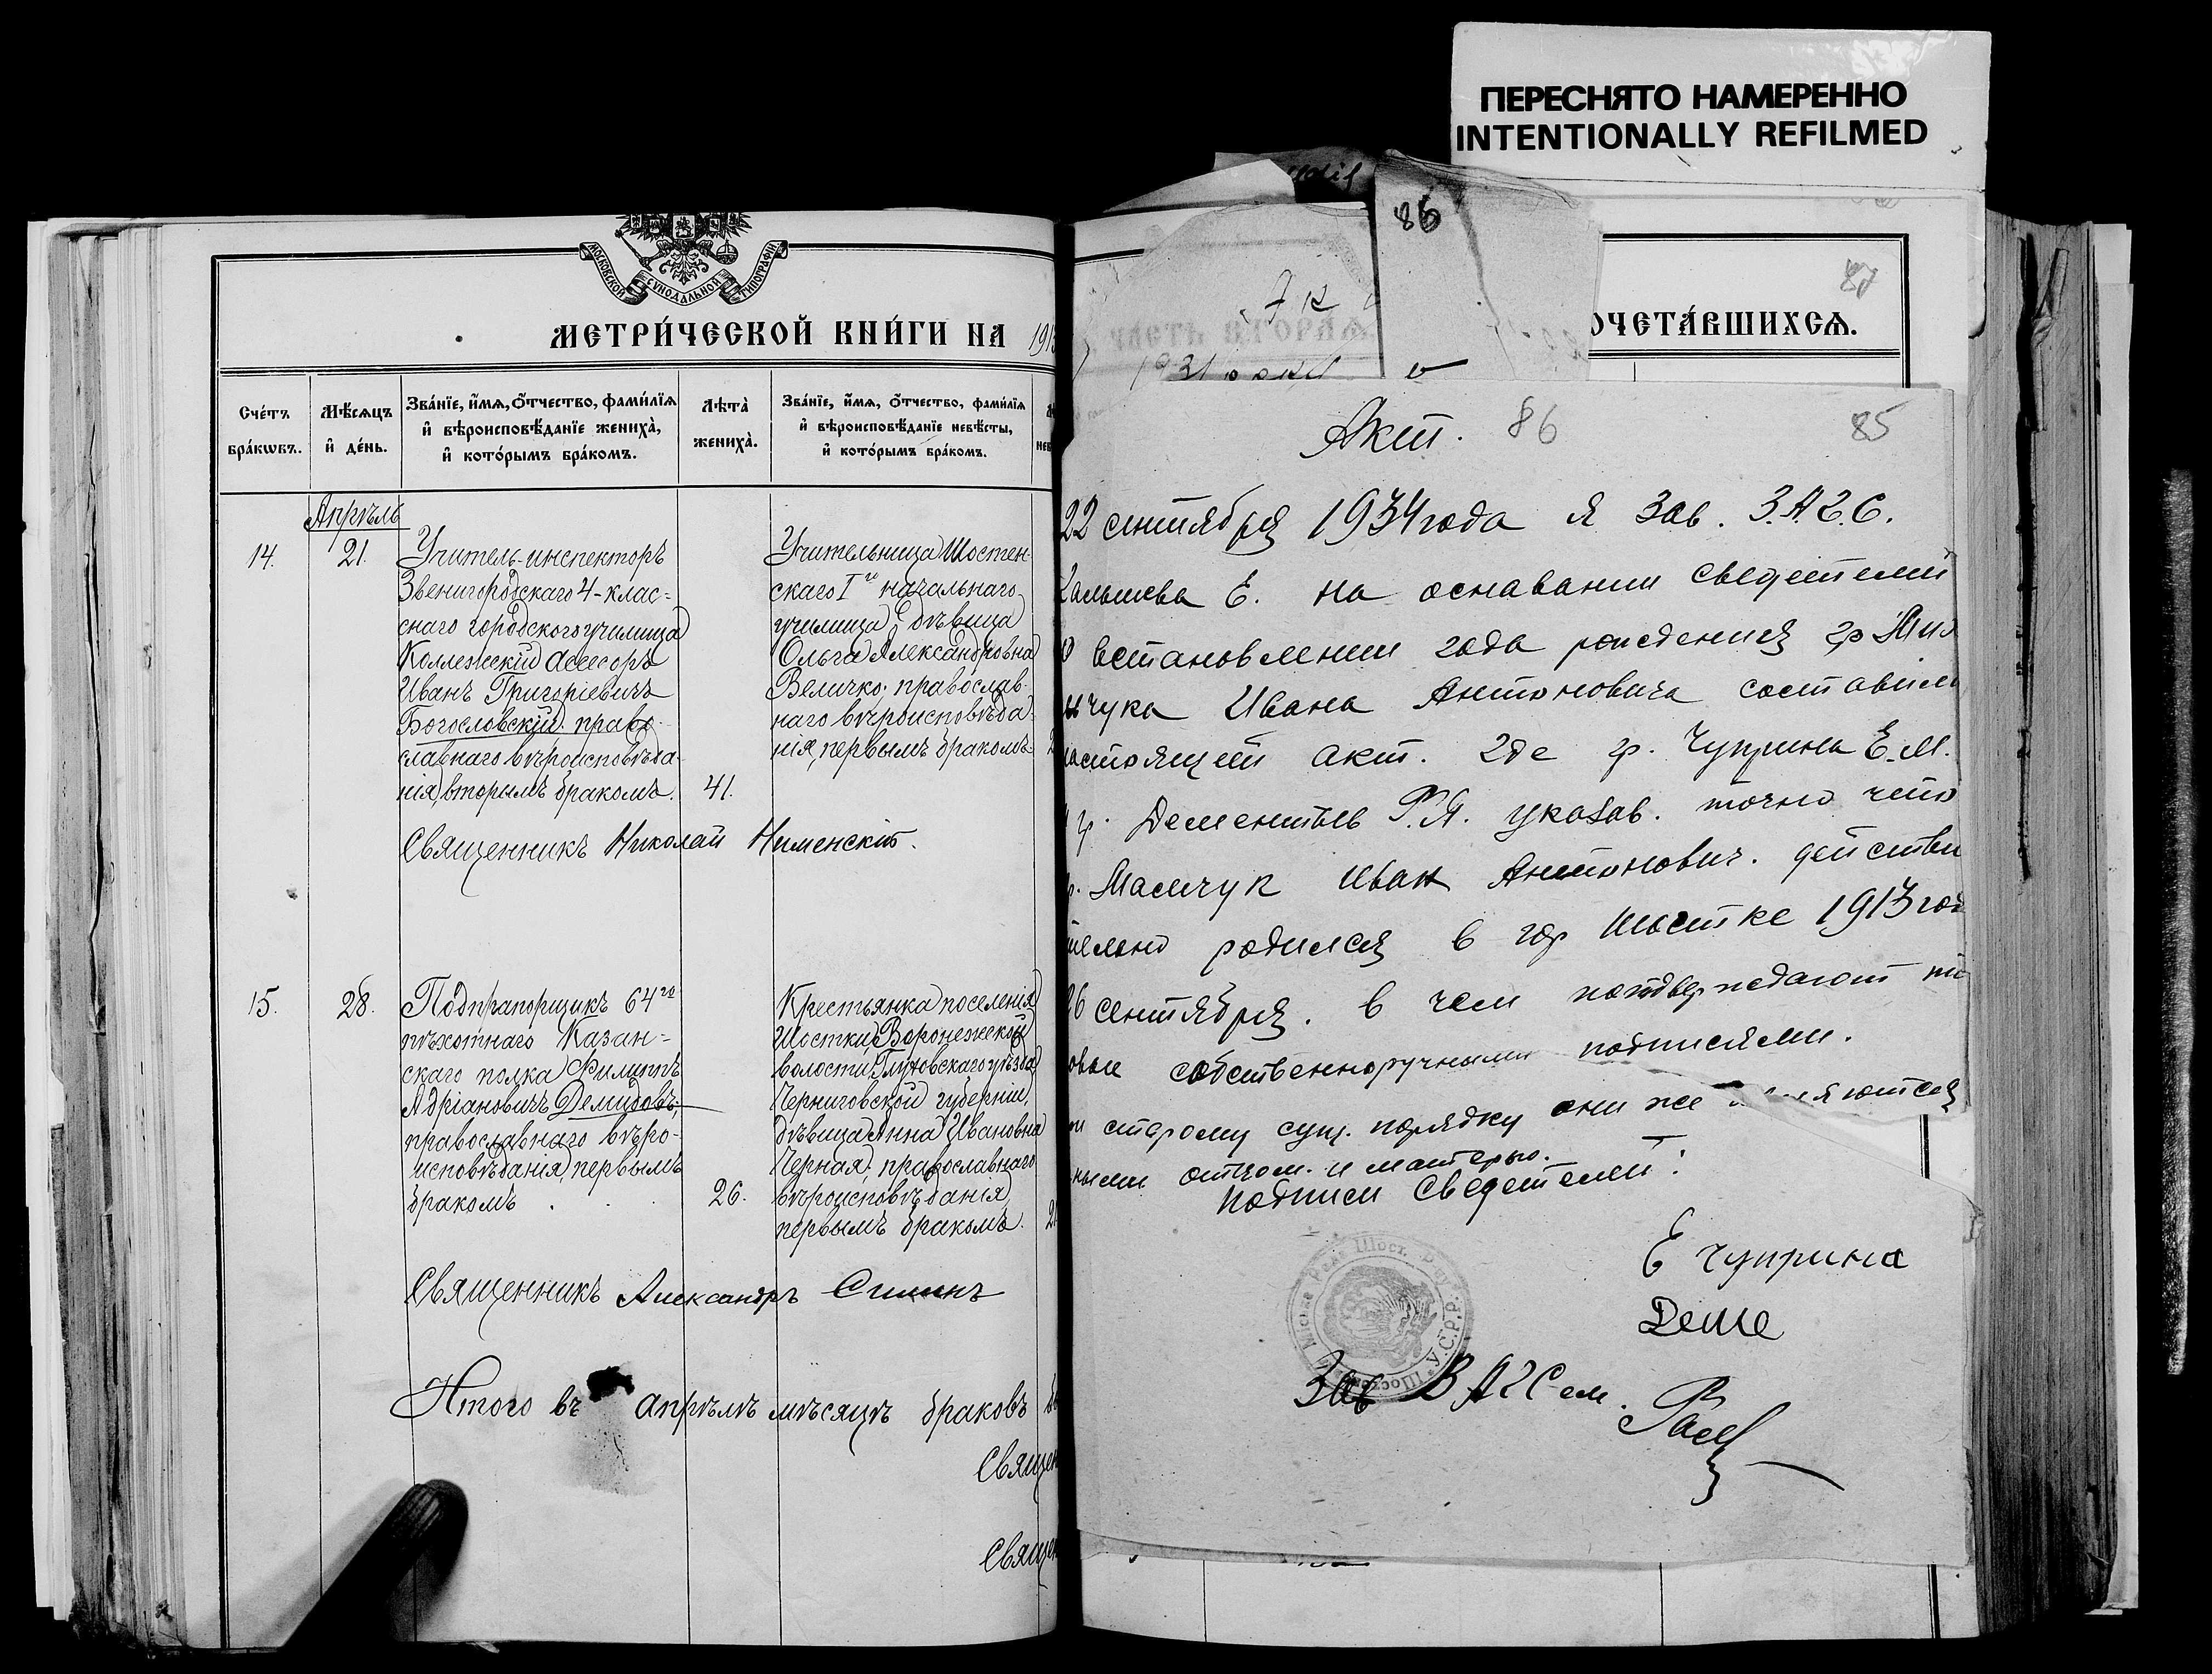 ПЕРЕСНЯТО НАМЕРЕННО
INTENTIONALLY REFILMED
МОСКОВСКОЙ СУНОДАЛЬНОЙ ТИПОГРАФІИ
МЕТРИ́ЧЕСКОЙ КНИ́ГИ НА 1913
Сче́тъ бра́кωвъ.
Мѣ́сѧцъ и҆ де́нь.
Зва́нїе, и҆́мѧ, ѻ҆́тчество, фами́лїѧ и҆ вѣроисповѣ́данїе жениха̀, и҆ кото́рымъ бра́комъ.
Лѣта̀ жениха̀.
Зва́нїе, и҆́мѧ, ѻ҆́тчество, фами́лїѧ и҆ вѣроисповѣ́данїе невѣ́сты, и҆ кото́рымъ бра́комъ.
Апрѣль
14.
21.
Учитель-инспекторъ
Звенигородскаго 4-клас=
снаго городского училища
Коллежскій Асессоръ
Иванъ Григоріевичъ
Богословскій, право-
славнаго вѣроисповѣда-
нія, вторымъ бракомъ.
41.
Учительница Шостен-
скаго I го начальнаго
училища, дѣвица
Ольга Александровна
Величко, православ-
наго вѣроисповѣда-
нія, первымъ бракомъ.
Священникъ Николай Нименскій.
15.
28.
Подпрапорщикъ 64го
пѣхотнаго Казан=
скаго полка Филиппъ
Адріановичъ Демидовъ,
православнаго вѣро-
исповѣданія, первымъ
бракомъ.
26.
Крестьянка поселенія
Шостки, Воронежской
волости, Глуховскаго уѣзда
Черниговской губерніи,
дѣвица Анна Ивановна
Черная, православнаго
вѣроисповѣданія,
первымъ бракомъ.
Священникъ Александръ
Итого въ апрѣлѣ мѣсяцѣ браковъ
Священ
Священ
86
87
ОЧЕТА́ВШИХСѦ.
ЧАСТЬ ВТОРАѦ
Акт.
86
85
22 сентября 1934 года я Зав. З.А.Г.С.
Е. на основании свидетелей
встановлении года рождения гр
чука Ивана Антоновича составили
настоящей акт. где гр. Чуприна Е.М.
гр. Дементьев Р.Я. указав. точно что
гр. Мамчук Иван Антонович. действи
тельно родился в гор Шостке 1913 год
26 сентября. в чем потдверждают
собственноручными подписями.
старому сущ. порядку они же являются
отцом. и матерью.
подписи Свидетелей:
Е Чуприна
Деме
Зав ЗАГСем.
У.С.Р.Р.